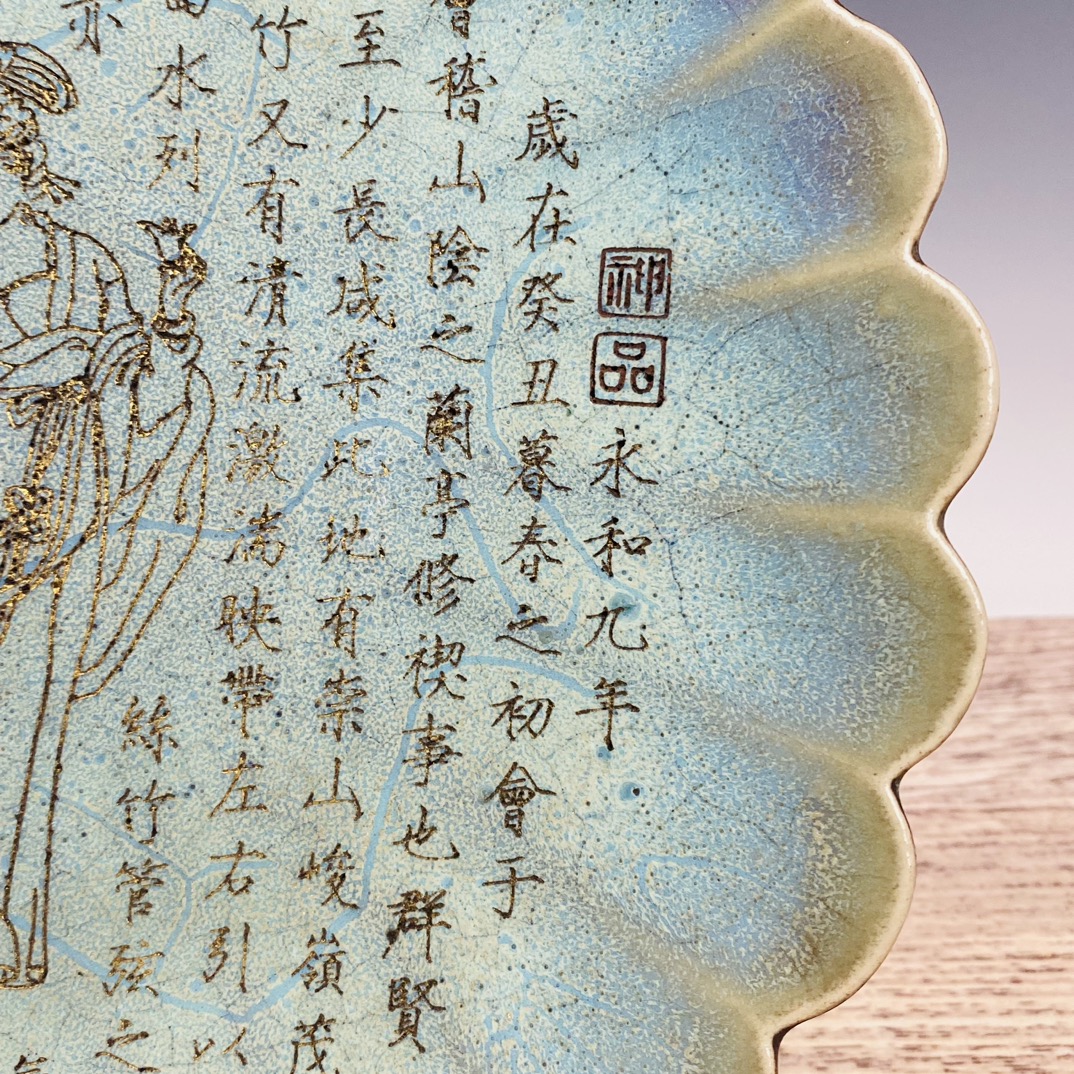 神品
永和九年
歲在癸丑暮春之初會于
會稽山陰之蘭亭修禊事也群賢
至少長咸集此地有崇山峻嶺茂
竹又有清流激湍映帶左右引以
水列
絲竹管弦之
亦